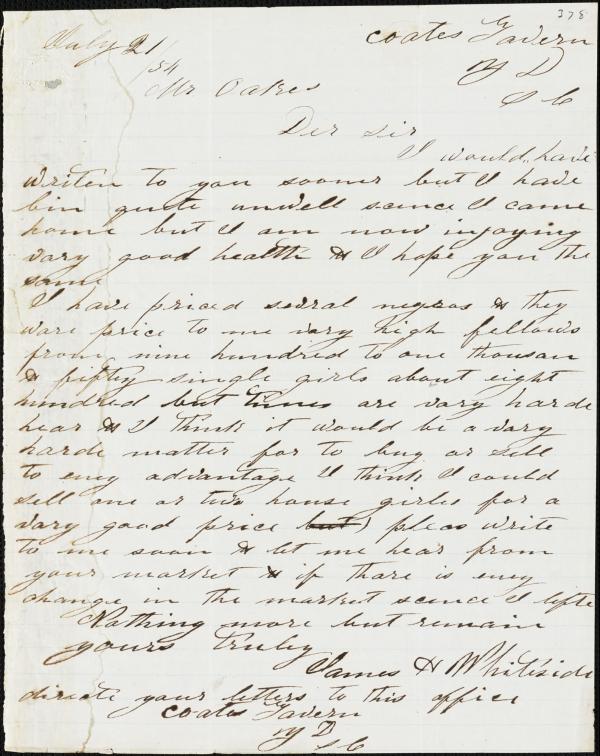 378
July 21
/54
coates Tavern
Y D
S C
Mr Oakes
Der sir
I would have
writen to you sooner but I have
bin quite unwell scence I came
home but I am now injoying
vary good health & I hope you the
same
I have priced sevral negros & they
ware price to me vary high fellows
from nine hundred to one thousan
& fifty single girls about eight
hundred but times are vary harde
hear & I think it would be a vary
harde matter for to buy or sell
to eny advantage I think I could
sell one or two house girles for a
vary good price but pleas write
to me soon & let me hear from
your market & if thare is eny
change in the market scence I lefte
Nothing more but remain
yours truly
James H Whiteside
directe your letters to this office
coates Tavern
Y D
S C